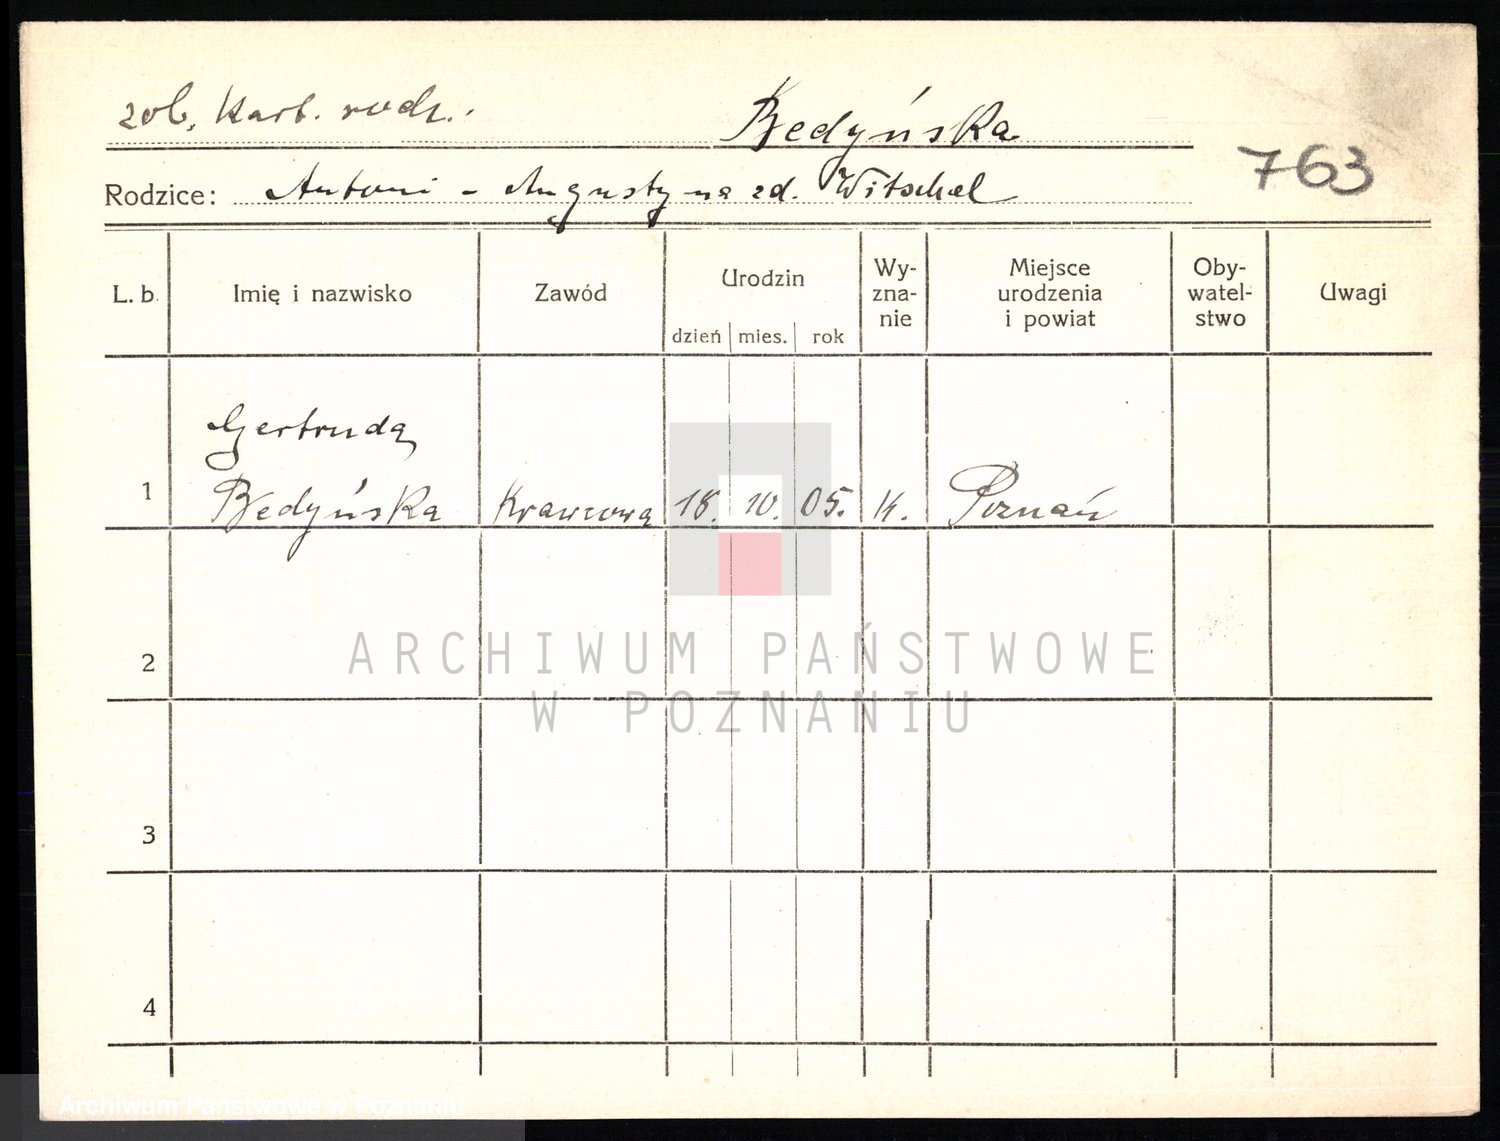 zob. Kart. rodz.
Bedyńska
763
Rodzice: Antoni - Augustyna zd. Witschel
L. b. Imię i nazwisko Zawód Urodzin Wy-
zna-
nie Miejsce
urodzenia
i powiat Oby-
watel-
stwo Uwagi
dzień mies. rok
Gertruda
1 Bedyńska Krawcowa 18. 10. 05. K. Poznań
2
3
4
ARCHIWUM PAŃSTWOWE
W POZNANIU
Archiwum Państwowe w Poznaniu